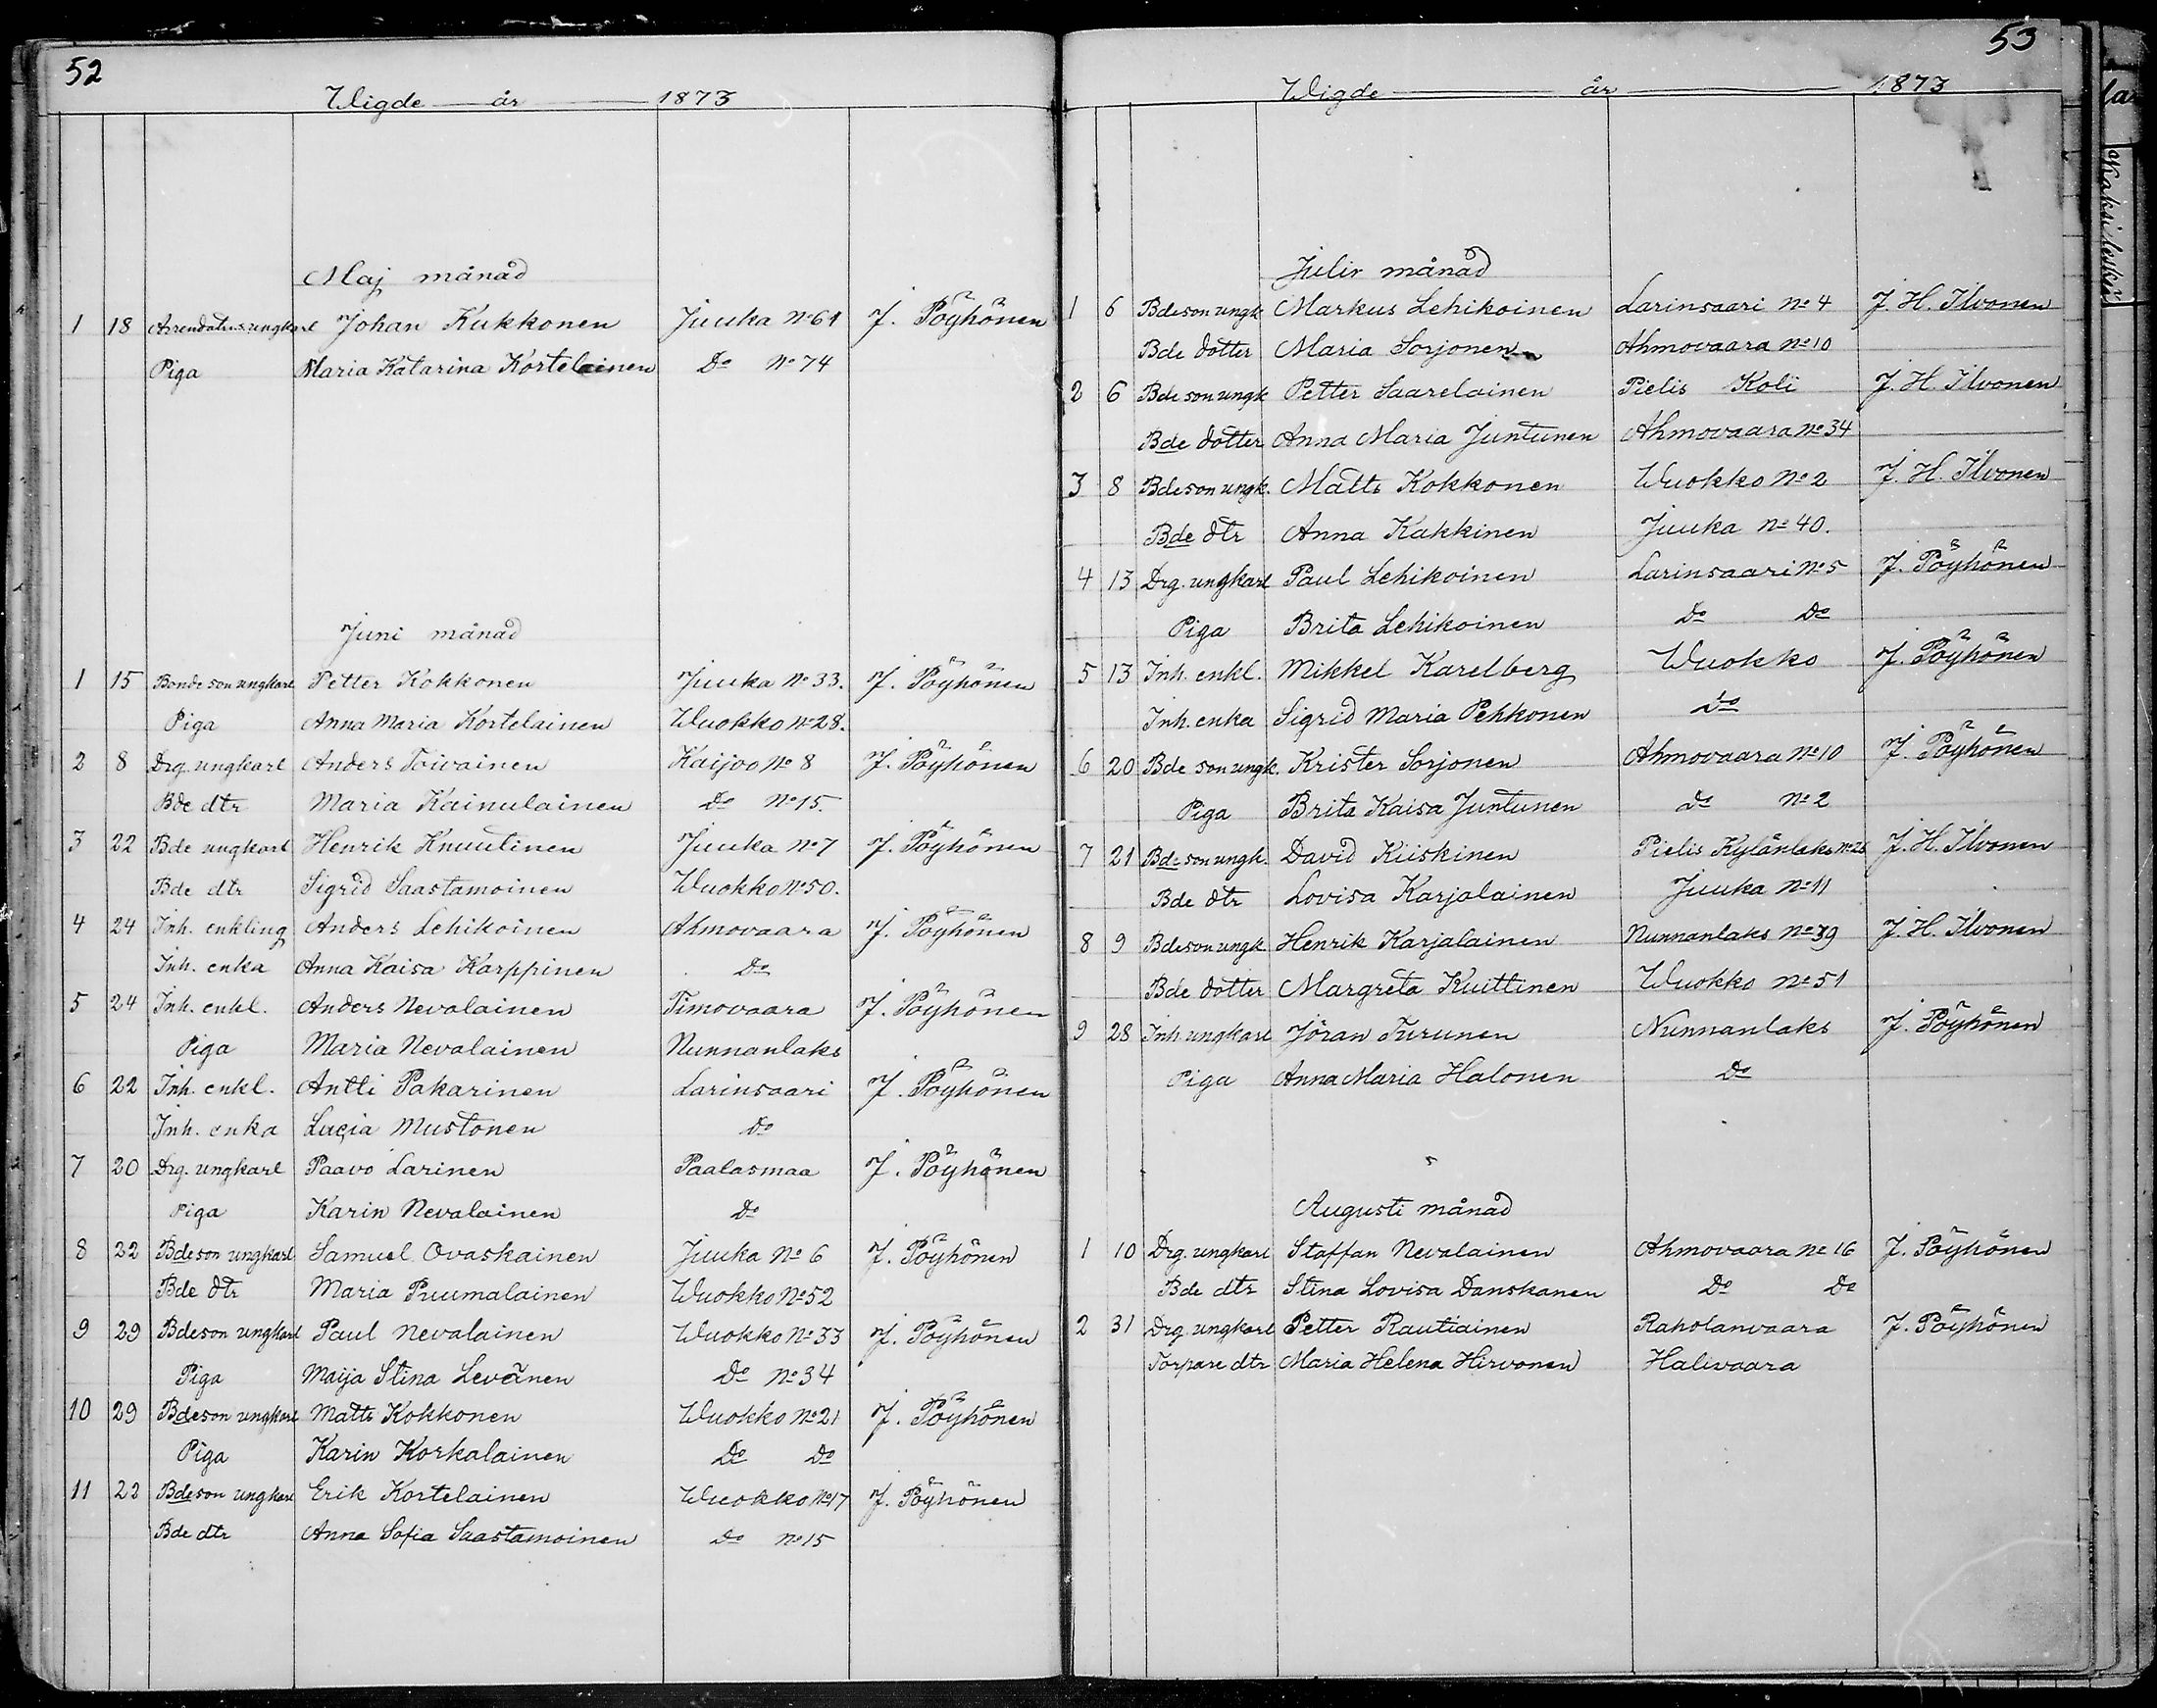 52
Wigde år 1873
Maj månad
1 18 Arrendators ungkarl Johan Kukkonen Juuka No 61 J. Pöyhönen
Piga Maria Katarina Kortelainen Do No 74
Juni månad
1 15 Bonde son ungkarl Petter Kokkonen Juuka No 33. J. Pöyhönen
Piga Anna Maria Kortelainen Wuokko No 28.
2 8 Drg. ungkarl Anders Toivainen Kaijoo No 8 J. Pöyhönen
Bde dtr Maria Kainulainen Do No 15.
3 22 Bde ungkarl Henrik Knuutinen Juuka No 7 J. Pöyhönen
Bde dtr Sigrid Saastamoinen Wuokko No 50.
4 24 Inh. enkling Anders Lehikoinen Ahmovaara J. Pöyhönen
Inh. enka Anna Kaisa Karppinen Do
5 24 Inh. enkl. Anders Nevalainen Timovaara J. Pöyhönen
Piga Maria Nevalainen Nunnanlaks
6 22 Inh. enkl. Antti Pakarinen Larinsaari J. Pöyhönen
Inh. enka Lucia Mustonen Do
7 20 Drg. ungkarl Paavo Larinen Paalasmaa J. Pöyhönen
Piga Karin Nevalainen Do
8 22 Bdeson ungkarl Samuel Ovaskainen Juuka No 6 J. Pöyhönen
Bde dtr Maria Puumalainen Wuokko No 52
9 29 Bdeson ungkarl Paul Nevalainen Wuokko No 33 J. Pöyhönen
Piga Maija Stina Levänen Do No 34
10 29 Bdeson ungkarl Matts Kokkonen Wuokko No 21 J. Pöyhönen
Piga Karin Korkalainen Do Do
11 22 Bdeson ungkarl Erik Kortelainen Wuokko No 17 J. Pöyhönen
Bde dtr Anna Sofia Saastamoinen Do No 15
53
Wigde år 1873
Julii månad
1 6 Bdeson ungk Markus Lehikoinen Larinsaari No 4 J. H. Ilvonen
Bde dotter Maria Sorjonen Ahmovaara No 10
2 6 Bde son ungk Petter Saarelainen Pielis Koli J. H. Ilvonen
Bde dotter Anna Maria Juntunen Ahmovaara No 34
3 8 Bdeson ungk. Matts Kokkonen Wuokko No 2 J. H. Ilvonen
Bde dtr Anna Kakkinen Juuka No 40.
4 13 Drg. ungkarl Paul Lehikoinen Larinsaari No 5 J. Pöyhönen
Piga Brita Lehikoinen Do Do
5 13 Inh. enkl. Mikkel Karelberg Wuokko J. Pöyhönen
Inh. enka Sigrid Maria Pehkonen Do
6 20 Bde son ungk. Krister Sorjonen Ahmovaara No 10 J. Pöyhönen
Piga Brita Kaisa Juntunen Do No 2
7 21 Bde son ungk. David Kiiskinen Pielis Kylänlaks J. H. Ilvonen
Bde dtr Lovisa Karjalainen Juuka No 11
8 9 Bdeson ungk. Henrik Karjalainen Nunnanlaks No 39 J. H. Ilvonen
Bde dotter Margreta Kuittinen Wuokko No 51
9 28 Inh. ungkarl Jöran Turunen Nunnanlaks J. Pöyhönen
Piga Anna Maria Halonen Do
Augusti månad
1 10 Drg. ungkarl Staffan Nevalainen Ahmovaara No 16 J. Pöyhönen
Bde dtr Stina Lovisa Danskanen Do Do
2 31 Drg. ungkarl Petter Rautiainen Raholanvaara J. Pöyhönen
Torpare dtr Maria Helena Hirvonen Halivaara